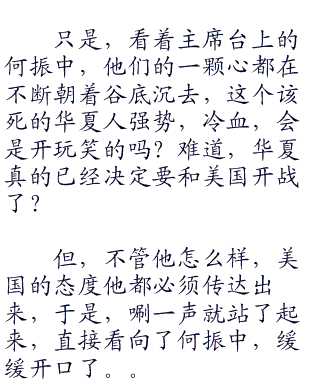 只是，看着主席台上的
何振中，他们的一颗心都在
不断朝着谷底沉去，这个该
死的华夏人强势，冷血，会
是开玩笑的吗？难道，华夏
真的已经决定要和美国开战
了？
但，不管他怎么样，美
国的态度他都必须传达出
来，于是，唰一声就站了起
来，直接看向了何振中，缓
缓开口了。。